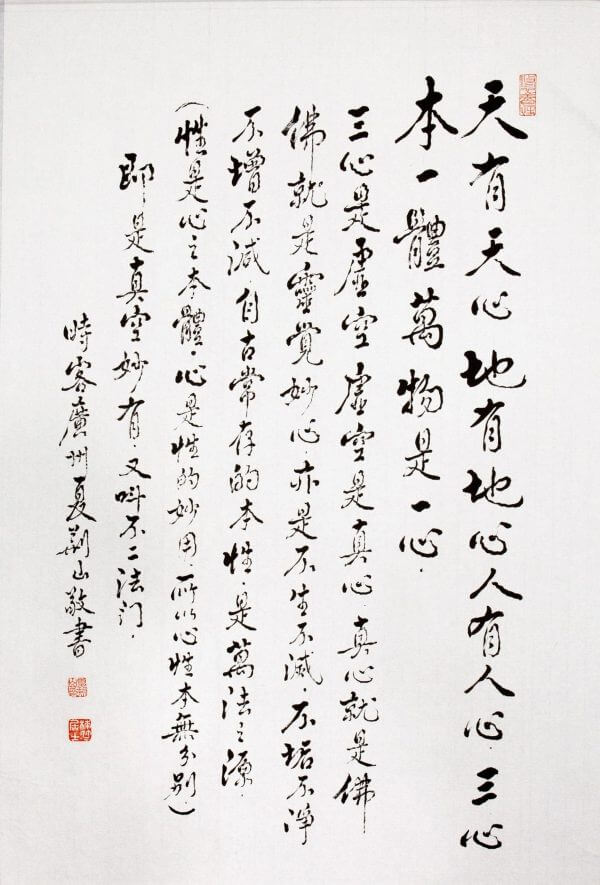 天有天心地有地心人有人心．三心
本一體萬物是一心．
三心是虛空虛空是真心．真心就是佛
佛就是靈覺妙心．亦是不生不滅．不垢不淨
不增不減．自古常存的本性．是萬法之源．
（性是心之本體．心是性的妙用．所以心性本無分別．）
即是真空妙有．又叫不二法门．
時客廣州夏荊山敬書